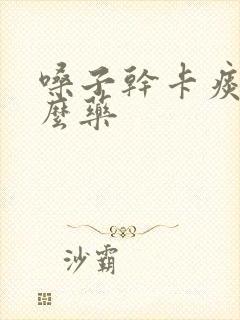 嗓子幹卡痰
麼藥
沙霸